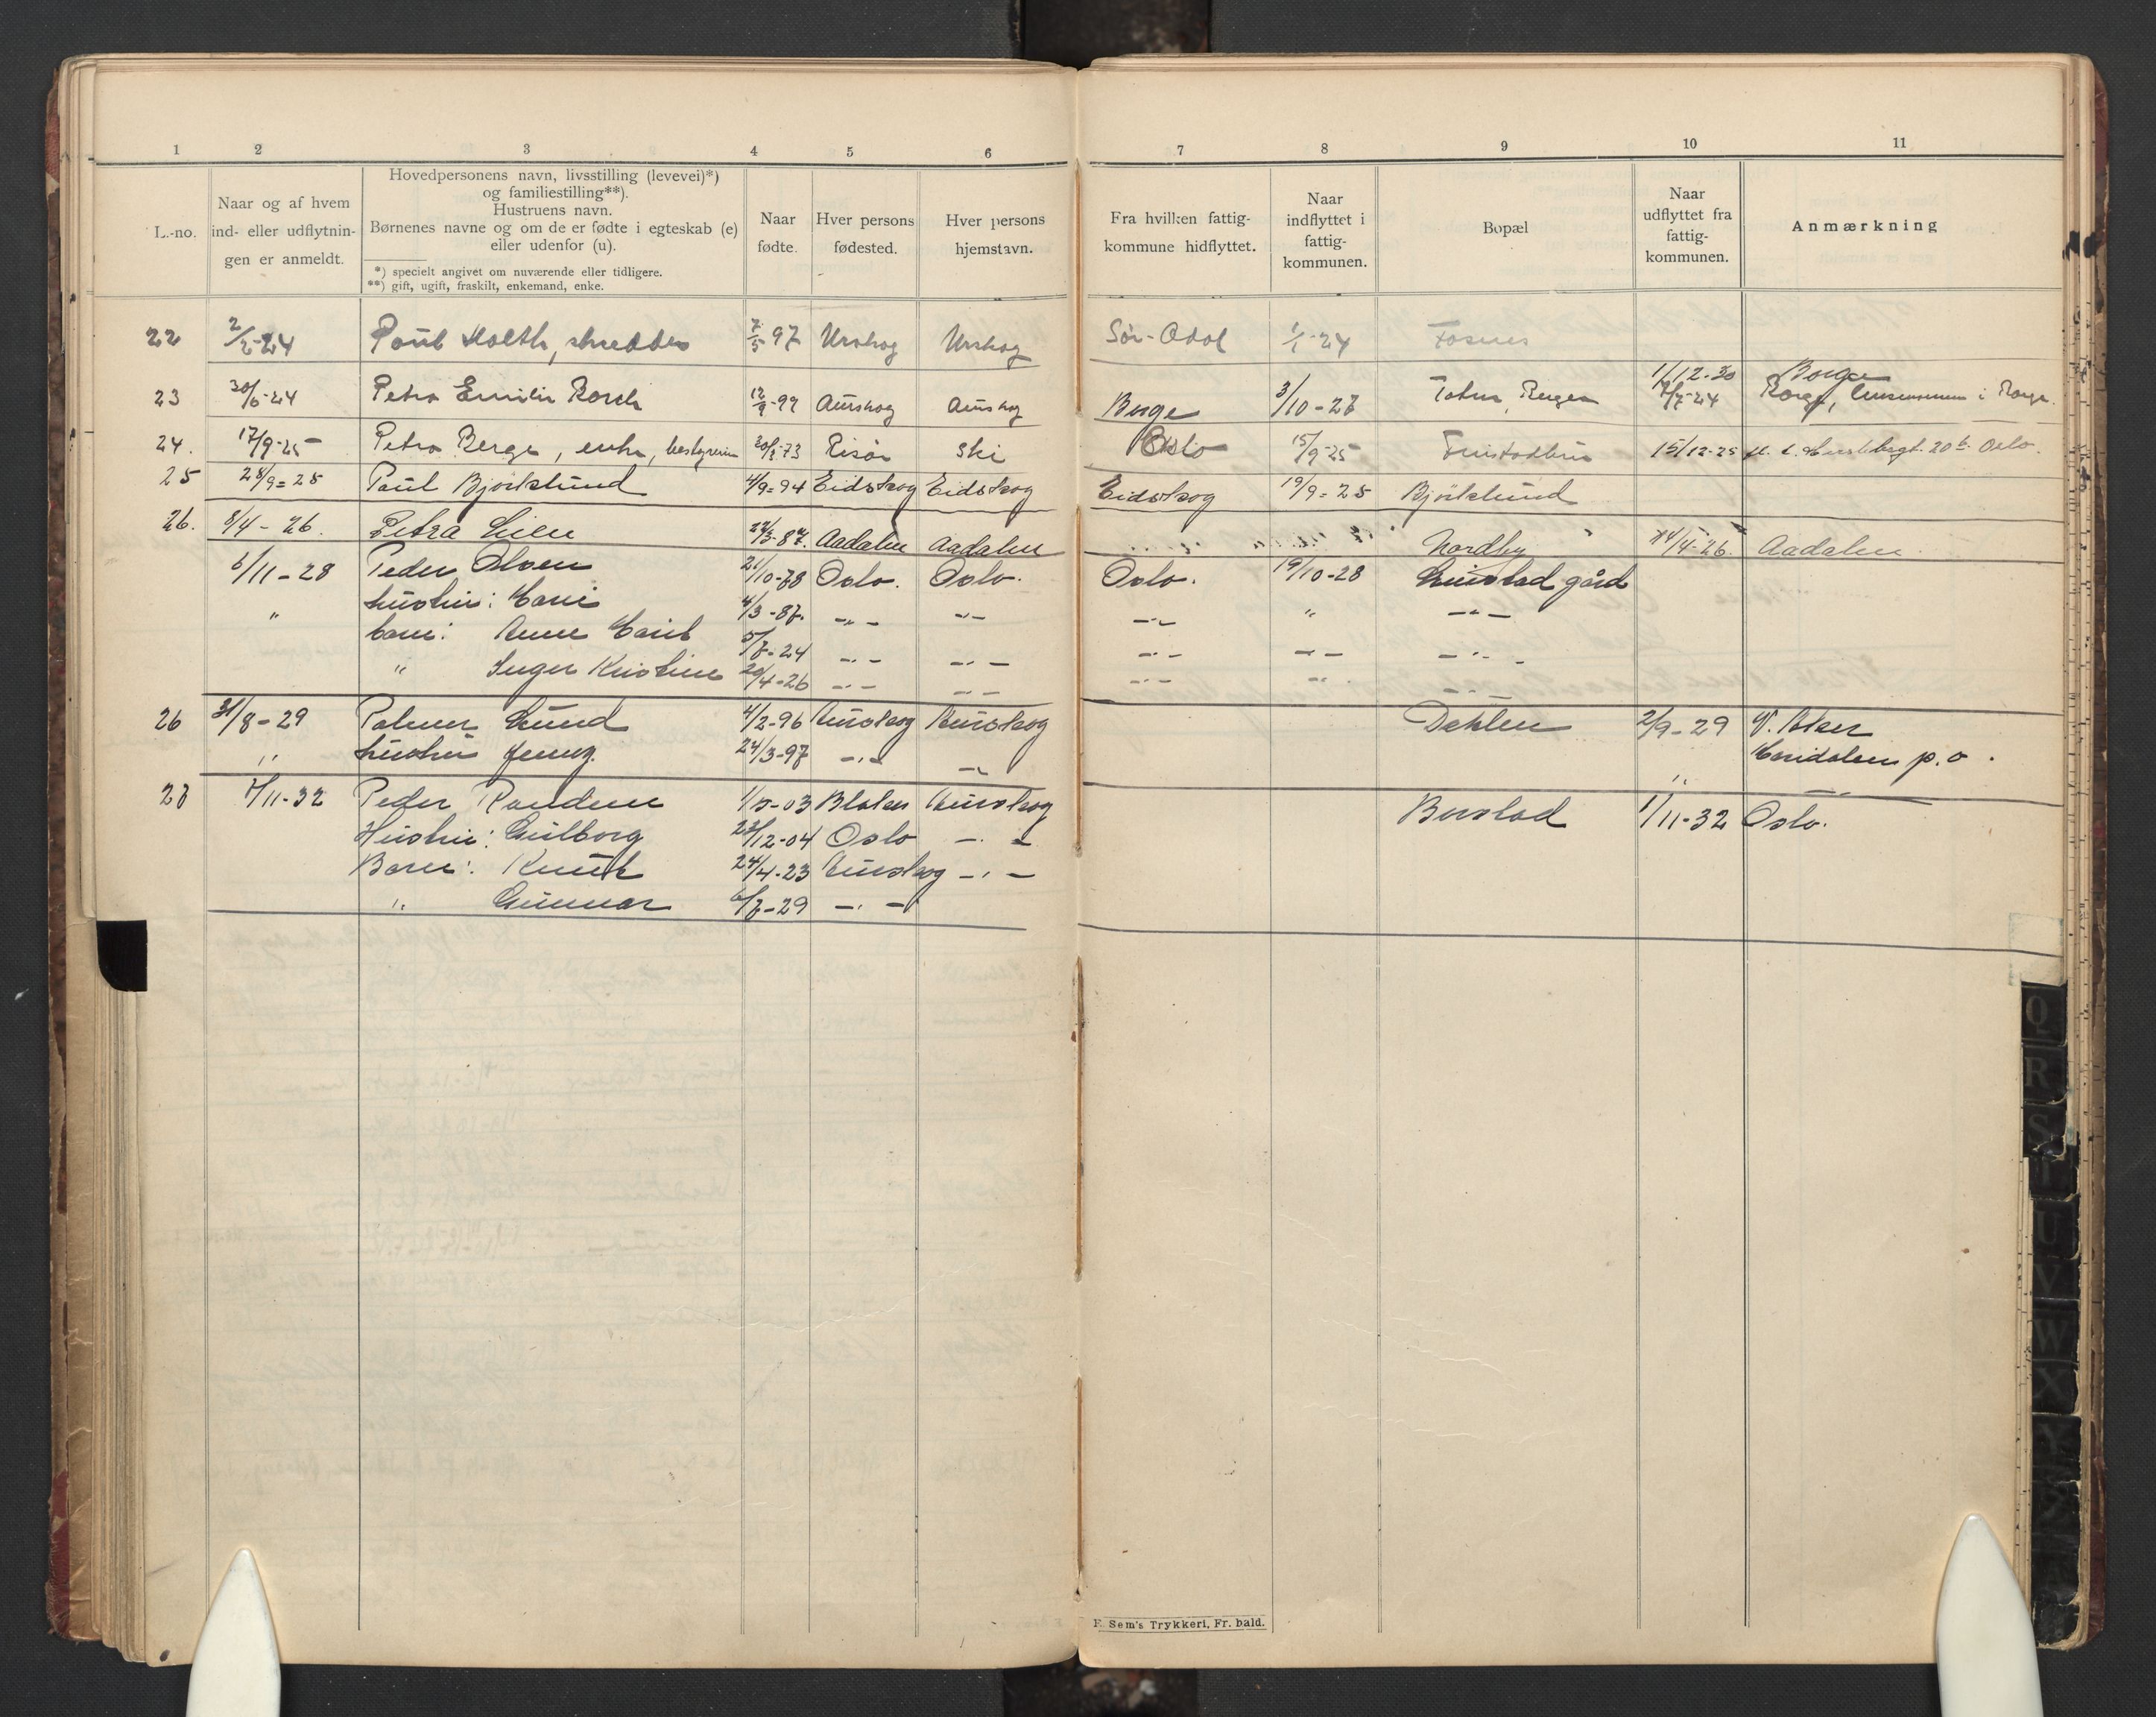 1 2 3 4 5 6 7 8 9 10 11
L.-no.
Naar og af hvem
ind- eller udflytnin-
gen er anmeldt.
Hovedpersonens navn, livsstilling (levevei)*)
og familiestilling**).
Hustruens navn.
Børnenes navne og om de er fødte i egteskab (e)
eller udenfor (u).
*) specielt angivet om nuværende eller tidligere.
**) gift, ugift, fraskilt, enkemand, enke.
Naar
fødte.
Hver persons
fødested.
Hver persons
hjemstavn.
Fra hvilken fattig-
kommune hidflyttet.
Naar
indflyttet i
fattig-
kommunen.
Bopæl
Naar
udflyttet fra
fattig-
kommunen.
Anmærkning
22 2/2-24 Paul Holth, skredder 7/5 97 Urskog Urskog Sør-Odal 1/1-24 Fosnes
1/12-30 Borge
23 30/6-24 Petra Emilie Borch 12/9-99 Aurskog Aurskog Borge 3/10-27 7/7-24 Borge, i Borge.
24. 17/9-25 Petra Berge, enke, bestyrerin 30/1-73 Risør Ski Oslo 15/9-25 15/12-25 20b Oslo.
25 28/9=25 Paul Bjørklund 4/9=94 Eidskog Eidskog Eidskog 19/9=25 Bjørklund
26. 8/4-26. Petra Lien 22/3-87. Aadalen Aadalen Nordby 14/4-26. Aadalen
6/11-28 Peder Olsen 21/10-78 Oslo. Oslo. Oslo. 19/10-28 Finstad gård
" hustru: Marie 4/3-87. -"- -"- -"- " -"-
barn: Anne Marit 5/7-24 -"- -"- -"- -"- -"-
" Inger Kristine 20/4-26 -"- -"- -"- -"-
26 31/8-29 Palmer Lund 4/2-96 Aurskog Aurskog Dahlen 2/9-29 V. Aker
" hustru Jenny. 24/3-97 -"- -"- " Maridalen p.o.
27 7/11-32 Peder Randem 1/5-03 Blaker Aurskog Burstad 1/11-32 Oslo.
Hustru: Gulborg 23/12-04 Oslo -"-
Barn: Knut 24/4-23 Aurskog -"-
" Gunnar 6/7-29 -"-
F. Sem's Trykkeri, Fr. hald.
Q
R
S
T
U
V
W
X
Y